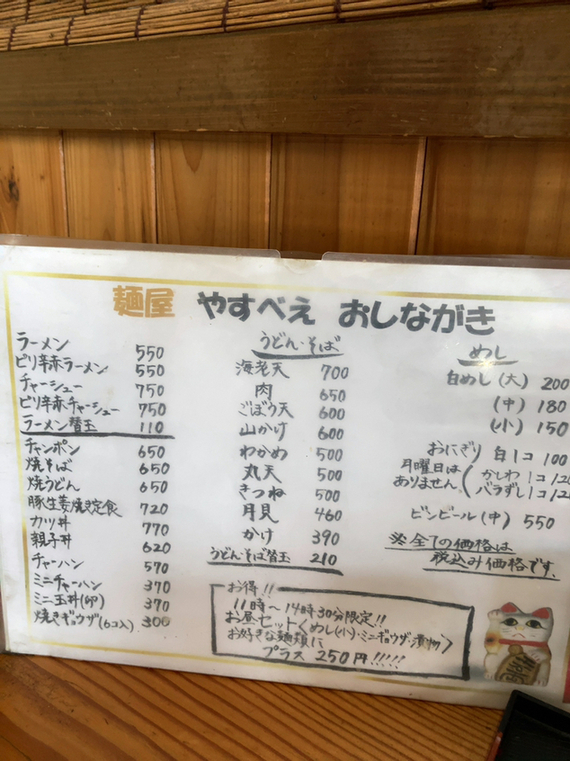 麺屋 やすべえ おしながき
ラーメン 550
ピリ辛赤ラーメン 550
チャーシュー 750
ピリ辛赤チャーシュー 750
ラーメン替玉 110
チャンポン 650
焼そば 650
焼うどん 650
豚生姜焼き定食 720
カツ丼 770
親子丼 620
チャーハン 570
ミニチャーハン 370
ミニ玉丼(卵) 370
焼きギョウザ(6コ入) 300
うどん・そば
海老天 700
肉 650
ごぼう天 600
山かけ 600
わかめ 500
丸天 500
きつね 500
月見 460
かけ 390
うどん・そば替玉 210
めし
白めし(大) 200
(中) 180
(小) 150
おにぎり 白1コ 100
月曜日は
ありません
かしわ1コ 12
バラずし1コ 12
ビンビール(中) 550
※全ての価格は
税込み価格です。
お得!!
11時~14時30分限定!!
お昼セット〈めし(小)・ミニギョウザ・漬物〉
お好きな麺類に
プラス 250円!!!!!